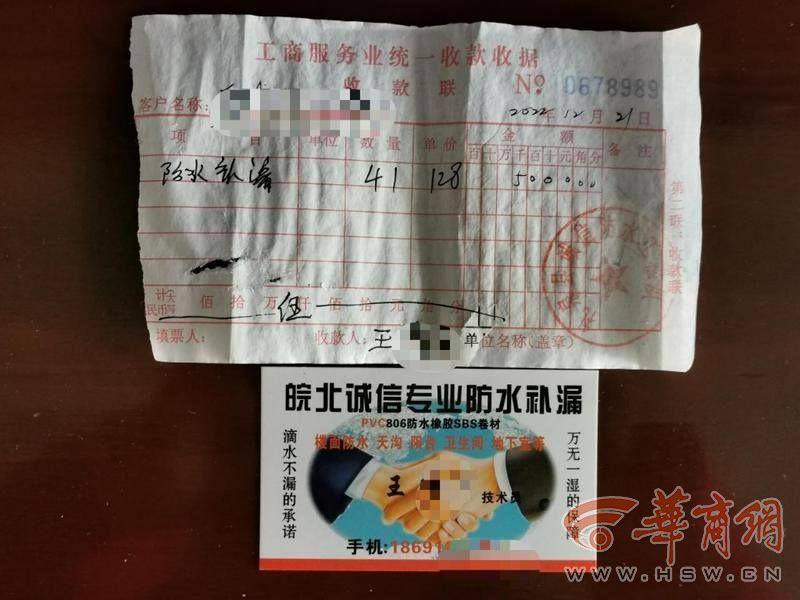 工商服务业统一收款收据
收款联 № 0678989
客户名称: 2022年12月21日
项目 单位 数量 单价 金额 备注
百十万千百十元角分
防水补漏 41 128 500000
第二联:收款联
计(大写)人民币 佰拾万伍仟佰拾元角分
填票人: 收款人:王 单位名称(盖章)
皖北诚信专业防水补漏
PVC806防水橡胶SBS卷材
楼面防水 天沟 阳台 卫生间 地下室等
滴水不漏的承诺
万无一湿的保障
王 技术员
手机:18691
華商網
WWW.HSW.CN